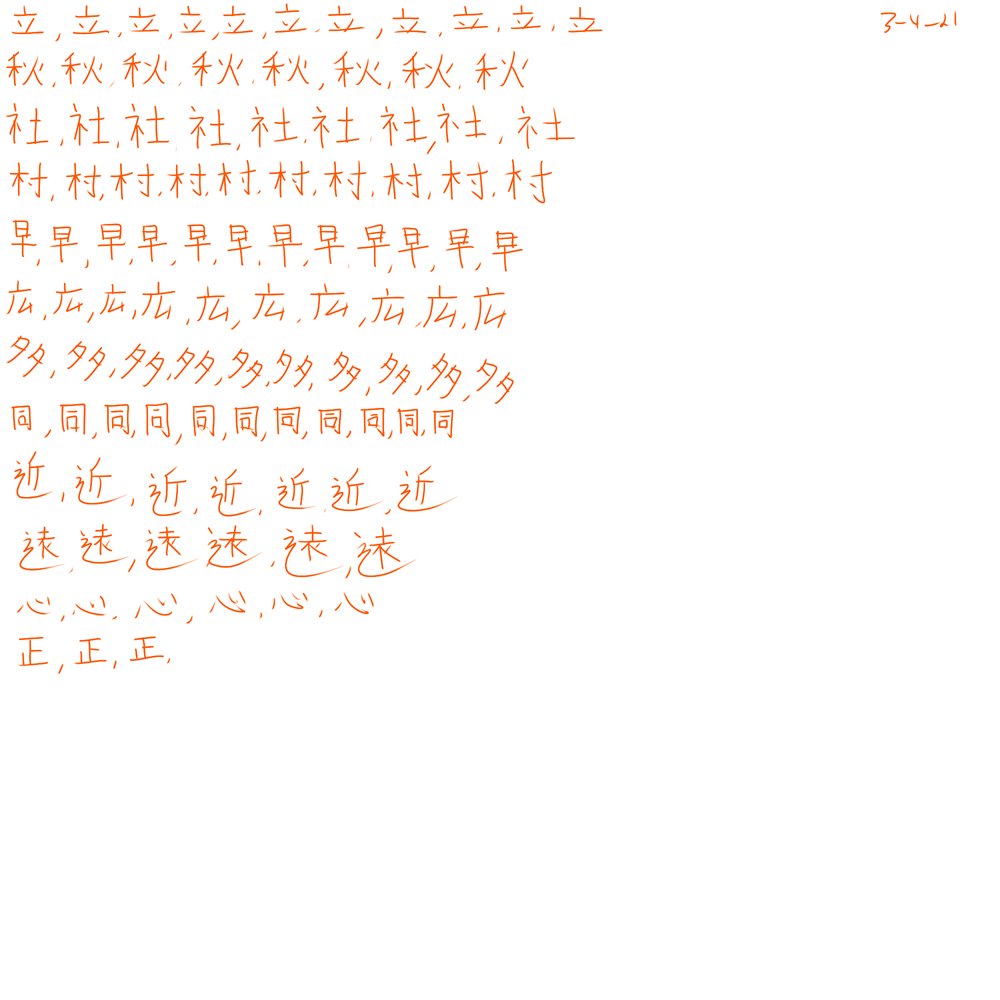 立,立,立,立,立,立.立,立,立.立.立 3-4-21
秋.秋.秋.秋.秋,秋,秋.秋
社,社,社.社,社.社.社,社,社
村,村,村.村.村.村.村.村,村.村
早,早,早,早,早,早.早,早.早,早,早,早
広,広,広,広,広,広.広,広.広,広
多,多,多,多,多,多,多,多,多,多
同,同,同,同,同,同,同,同,同,同,同
近,近,近,近,近.近,近
遠.遠,遠.遠.遠,遠
心,心.心,心.心,心
正,正,正,